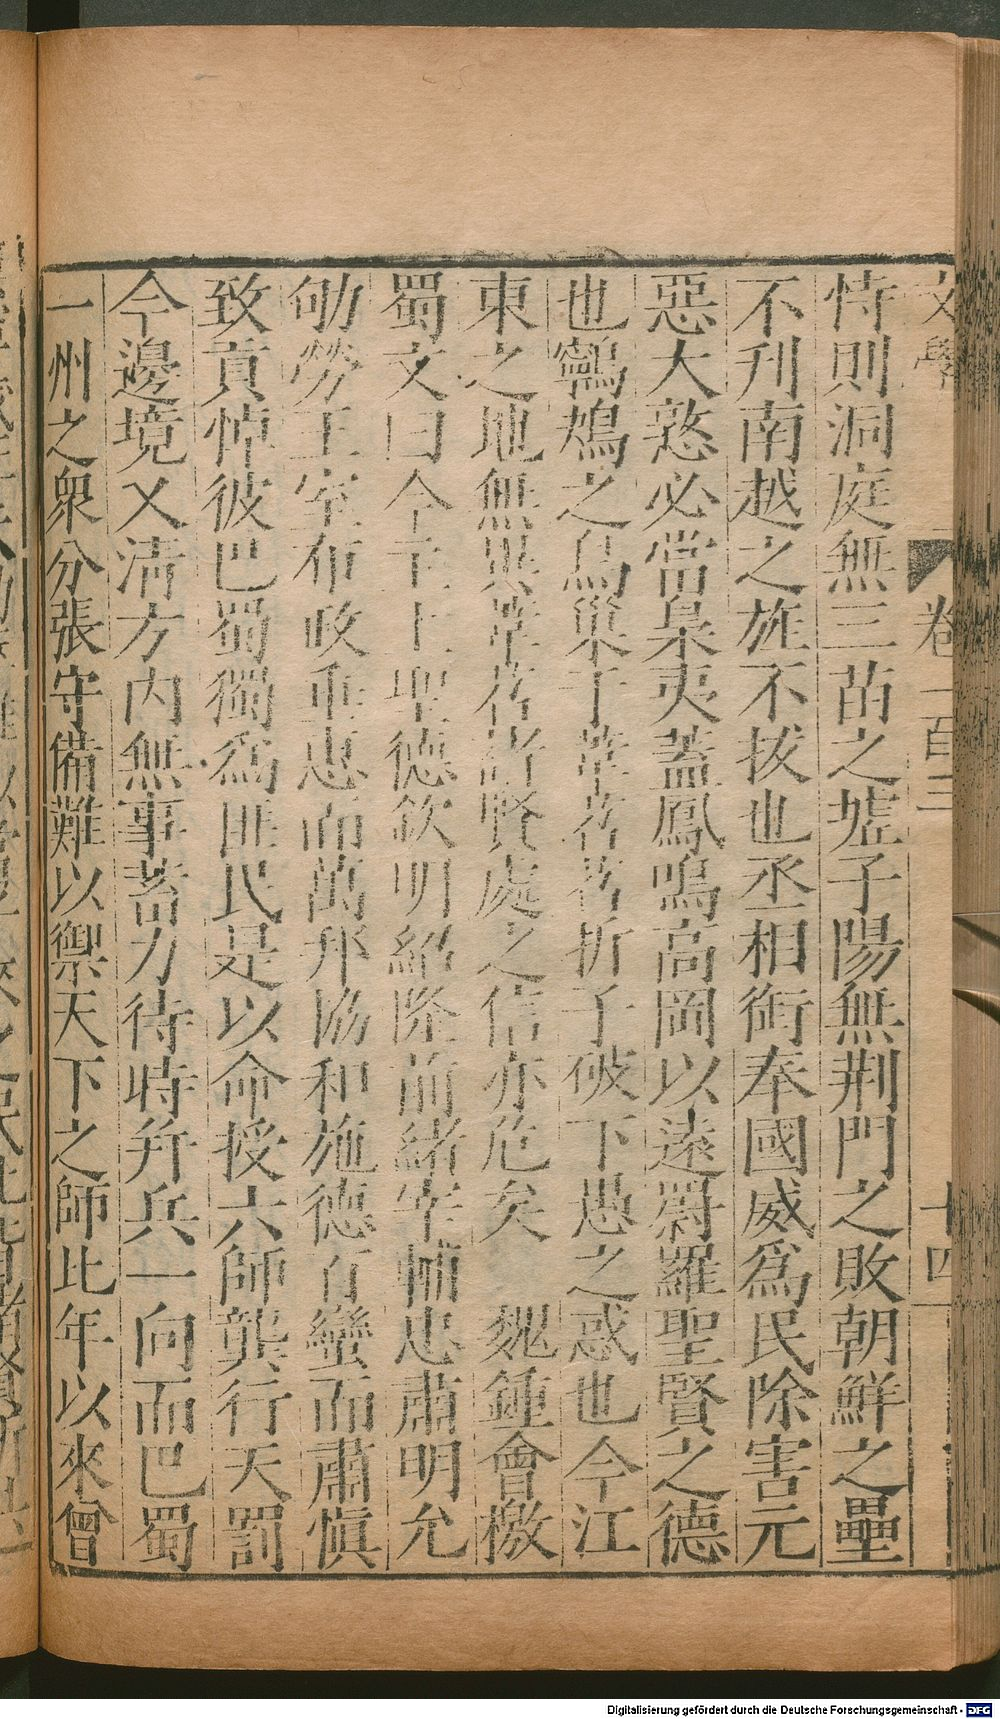 文學
卷一百三
十四
恃則洞庭無三苗之墟子陽無荆門之敗朝鮮之壘
不刋南越之旌不拔也丞相銜奉國威爲民除害元
惡大憝必當梟夷蓋鳳鳴高岡以遠罻羅聖賢之德
也鸋鴂之鳥巢于葦苕苕折子破下愚之惑也今江
東之地無異葦苕諸賢處之信亦危矣　魏鍾會檄
蜀文曰今主上聖德欽明紹隆前緒宰輔忠肅明允
劬勞王室布政垂惠而萬邦協和施德百蠻而肅愼
致貢悼彼巴蜀獨爲匪民是以命授六師龔行天罰
今邊境乂淸方內無事蓄力待時幷兵一向而巴蜀
一州之衆分張守備難以禦天下之師比年以來曾
Digitalisierung gefördert durch die Deutsche Forschungsgemeinschaft - DFG